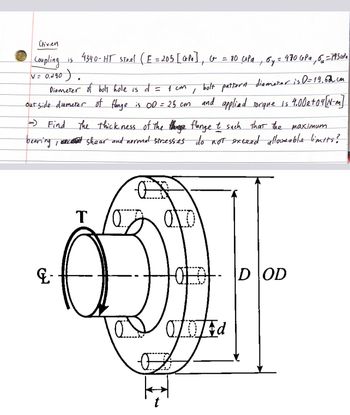 Given
Coupling is 4340-HT steel (E = 205 [GPa], G = 80 GPa, σy = 470 GPa, σu = 745
v = 0.290).
Diameter of bolt hole is d = 1 cm, bolt pattern diameter is D = 19.62 cm
outside diameter of flange is OD = 25 cm and applied torque is 9.00E+04 [N-m].
→ Find the thickness of the flange t such that the maximum
bearing, shear and normal stresses do not exceed allowable limits?
T
℄
D OD
d
t